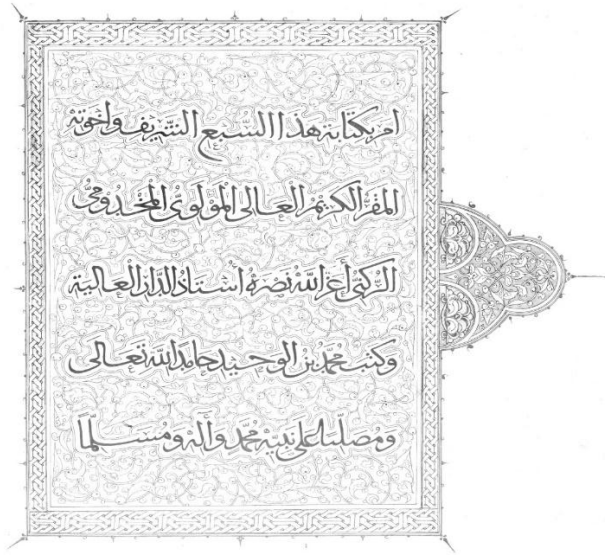 امر بكتابة هذا السبع الشريف واخوته
المقر الكريم العالي المولوي المخدومي
الركني أعز الله نصره استاذ الدار العالية
وكتب محمد بن الوحيد حامدا لله تعالى
ومصليا على نبيه محمد وآله ومسلما